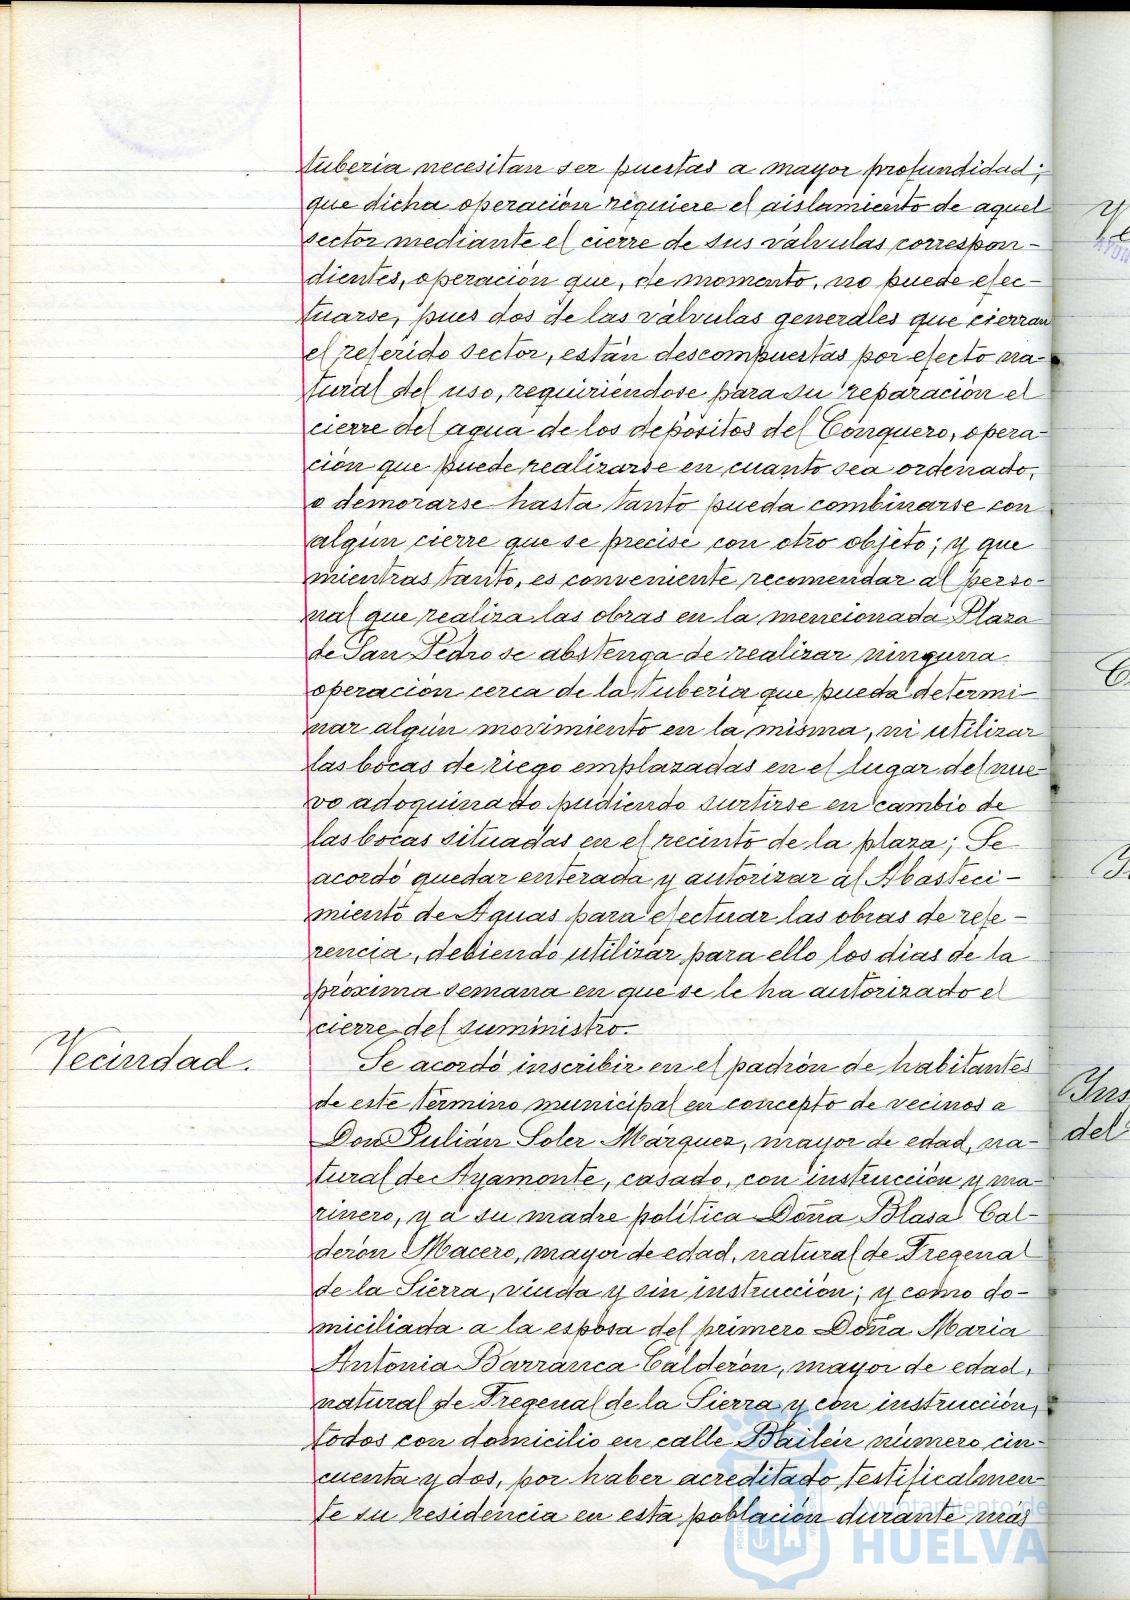 tuberia necesitan ser puestas a mayor profundidad;
que dicha operación requiere el aislamiento de aquel
sector mediante el cierre de sus válvulas correspon-
dientes, operación que, de momento, no puede efec-
tuarse, pues dos de las válvulas generales que cierran
el referido sector, están descompuestas por efecto na-
tural del uso, requiriéndose para su reparación el
cierre del agua de los depósitos del Conquero, opera-
ción que puede realizarse en cuanto sea ordenado,
o demorarse hasta tanto pueda combinarse con
algún cierre que se precise con otro objeto; y que
mientras tanto, es conveniente recomendar al perso-
nal que realiza las obras en la mencionada Plaza
de San Pedro se abstenga de realizar ninguna
operación cerca de la tuberia que pueda determi-
nar algún movimiento en la misma, ni utilizar
las bocas de riego emplazadas en el lugar del nue-
vo adoquinado pudiendo surtirse en cambio de
las bocas situadas en el recinto de la plaza; Se
acordó quedar enterada y autorizar al Abasteci-
miento de Aguas para efectuar las obras de refe-
rencia, debiendo utilizar para ello los dias de la
próxima semana en que se le ha autorizado el
cierre del suministro.
Vecindad.
Se acordó inscribir en el padrón de habitantes
de este término municipal en concepto de vecinos a
Don Julián Soler Márquez, mayor de edad, na-
tural de Ayamonte, casado, con instrucción y ma-
rinero, y a su madre política Doña Blasa Cal-
derón Macero, mayor de edad, natural de Fregenal
de la Sierra, viuda y sin instrucción; y como do-
miciliada a la esposa del primero Doña Maria
Antonia Barranca Calderón, mayor de edad,
natural de Fregenal de la Sierra y con instrucción,
todos con domicilio en calle Bailén número cin-
cuenta y dos, por haber acreditado testificalmen-
te su residencia en esta población durante más
Ayuntamiento de
HUELVA
Ins
del